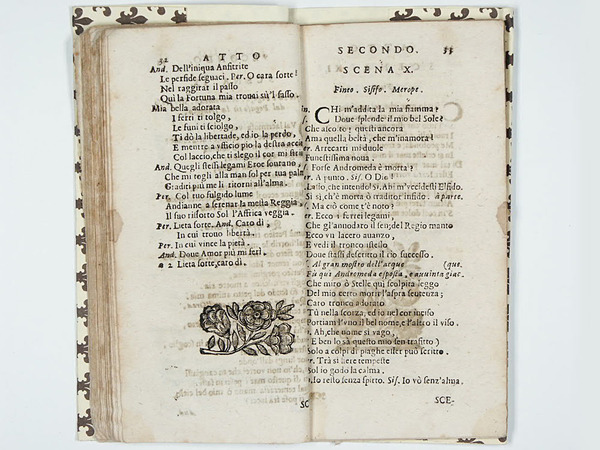 32 ATTO
And. Dell'iniqua Anfitrite
Le perfide seguaci. Per. O cara sorte!
Nel raggirar il passo
Quì la Fortuna mia trouai sù'l sasso.
Mia bella adorata
I ferri ti tolgo,
Le funi ti sciolgo,
Ti dò la libertade, ed io la perdo,
E mentre a vfficio pio la destra acco
Col laccio, che ti slego il cor mi strin
And. Quegli stessi legami Eroe sourano,
Che mi togli alla man sol per tua palm
Graditi più me li ritorni all'alma.
Per. Col tuo fulgido lume
Andianne a serenar la mesta Reggia,
Il suo risorto Sol l'Affrica veggia.
Per. Lieta sorte. And. Caro dì,
In cui trouo libertà.
Per. In cui vince la pietà.
And. Doue Amor più mi ferì.
a 2 Lieta sorte, caro dì.
SC
SECONDO. 33
SCENA X.
Fineo. Sisifo. Merope.
CHi m'addita la mia fiamma?
Doue splende il mio bel Sole?
Che ascolto? questi ancora
Ama quella beltà, che m'inamora!
Arrecarti mi duole
Funestissima noua.
Forse Andromeda è morta?
A punto. Sis. O Dio!
Lasso, che intendo! Sì, Ahi m'vccidesti Elisdo.
Sì sì, ch'è morta ò traditor infido. à parte.
Ma ciò come t'è noto?
Ecco i ferrei legami,
Che gl'annodaro il sen; del Regio manto
Ecco vn lacero auanzo,
E vedi il tronco istesso
Doue stassi descritto il rio successo.
Al gran mostro dell'acque (que.
Fù quì Andromeda esposta, e auuinta giac-
Che miro ò Stelle, quì scolpita leggo
Del mio certo morir l'aspra sentenza;
Caro tronco adorato
Tù nella scorza, ed io nel cor inciso
Portiam l'vno il bel nome, e l'altro il viso.
Ah, che nome sì vago,
E ben lo sà questo mio sen trafitto)
Solo a colpi di piaghe esser può scritto.
Trà sì fiere tempeste
Sol io godo la calma.
Io resto senza spirto. Sis. Io vò senz'alma.
SCE-